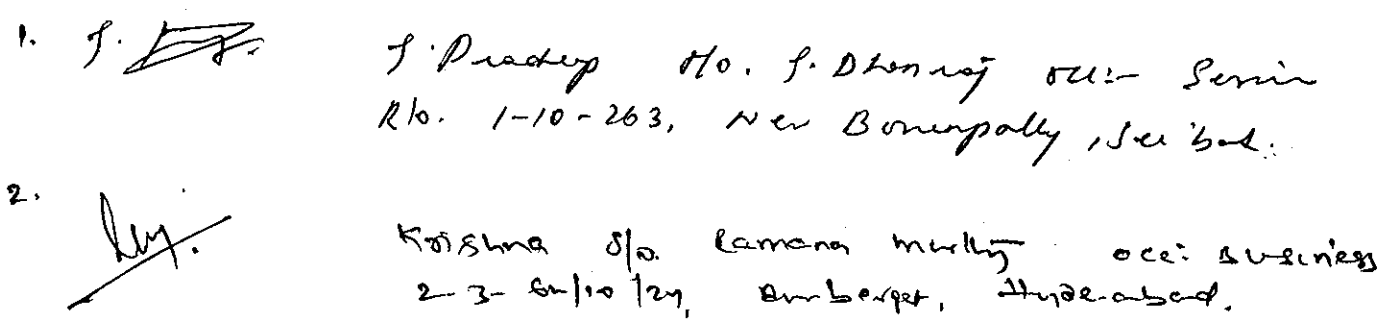 1. J. Pradeep S/o. J. Dhanraj occ:- Service
R/o. 1-10-263, New Bowenpally, Sec'bad.
2. Krishna S/o. Ramana Murthy occ: Business
2-3-64/10/24, Amberpet, Hyderabad.